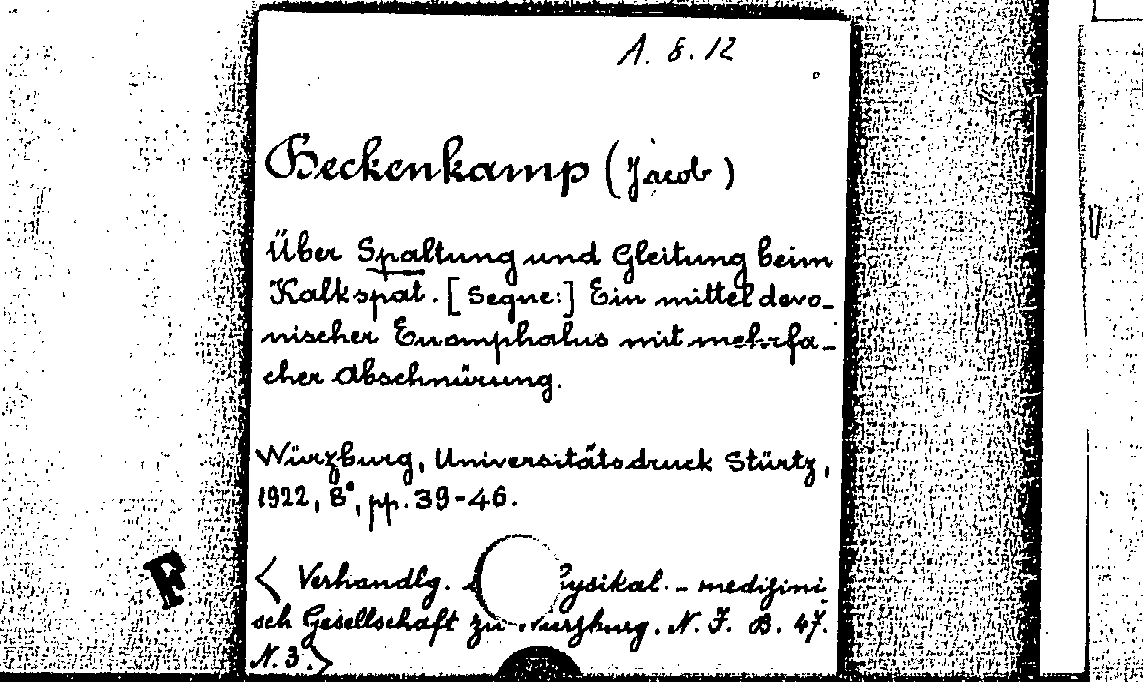 A. 8. 12
Beckenkamp (Jacob)
Über Spaltung und Gleitung beim
Kalkspat. [Segue:] Ein mitteldevo-
nischer Euomphalus mit mehrfa-
cher Abschnürung.
Würzburg, Universitätsdruck Stürtz,
1922, 8°, pp. 39-46.
< Verhandlg. ysikal. - medizini
sch Gesellschaft zu Würzburg. N. F. B. 47.
N. 3. >
F